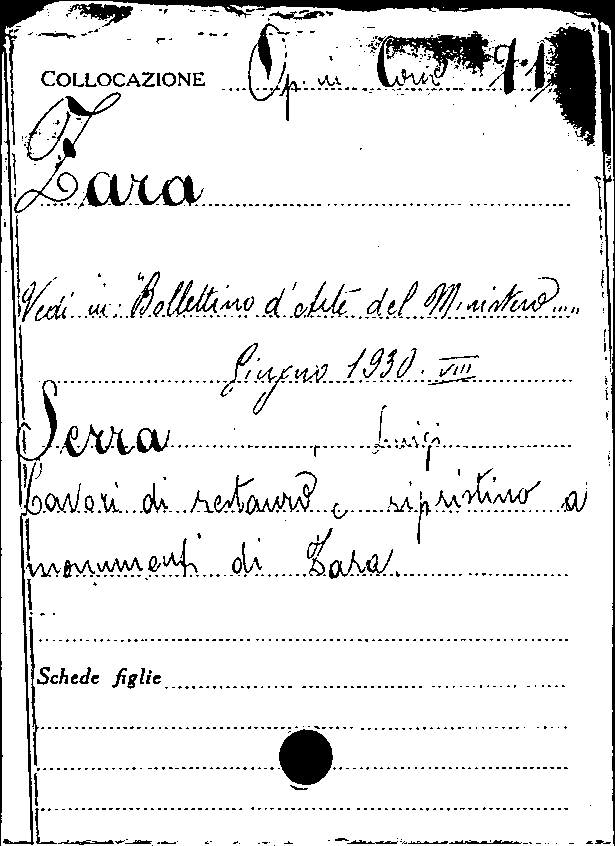 COLLOCAZIONE Op. in Cons 9.1
Zara
Vedi in: "Bollettino d'Arte del Ministero....
Giugno 1930. VIII
Serra, Luigi
Lavori di restauro e ripristino a
monumenti di Zara.
Schede figlie